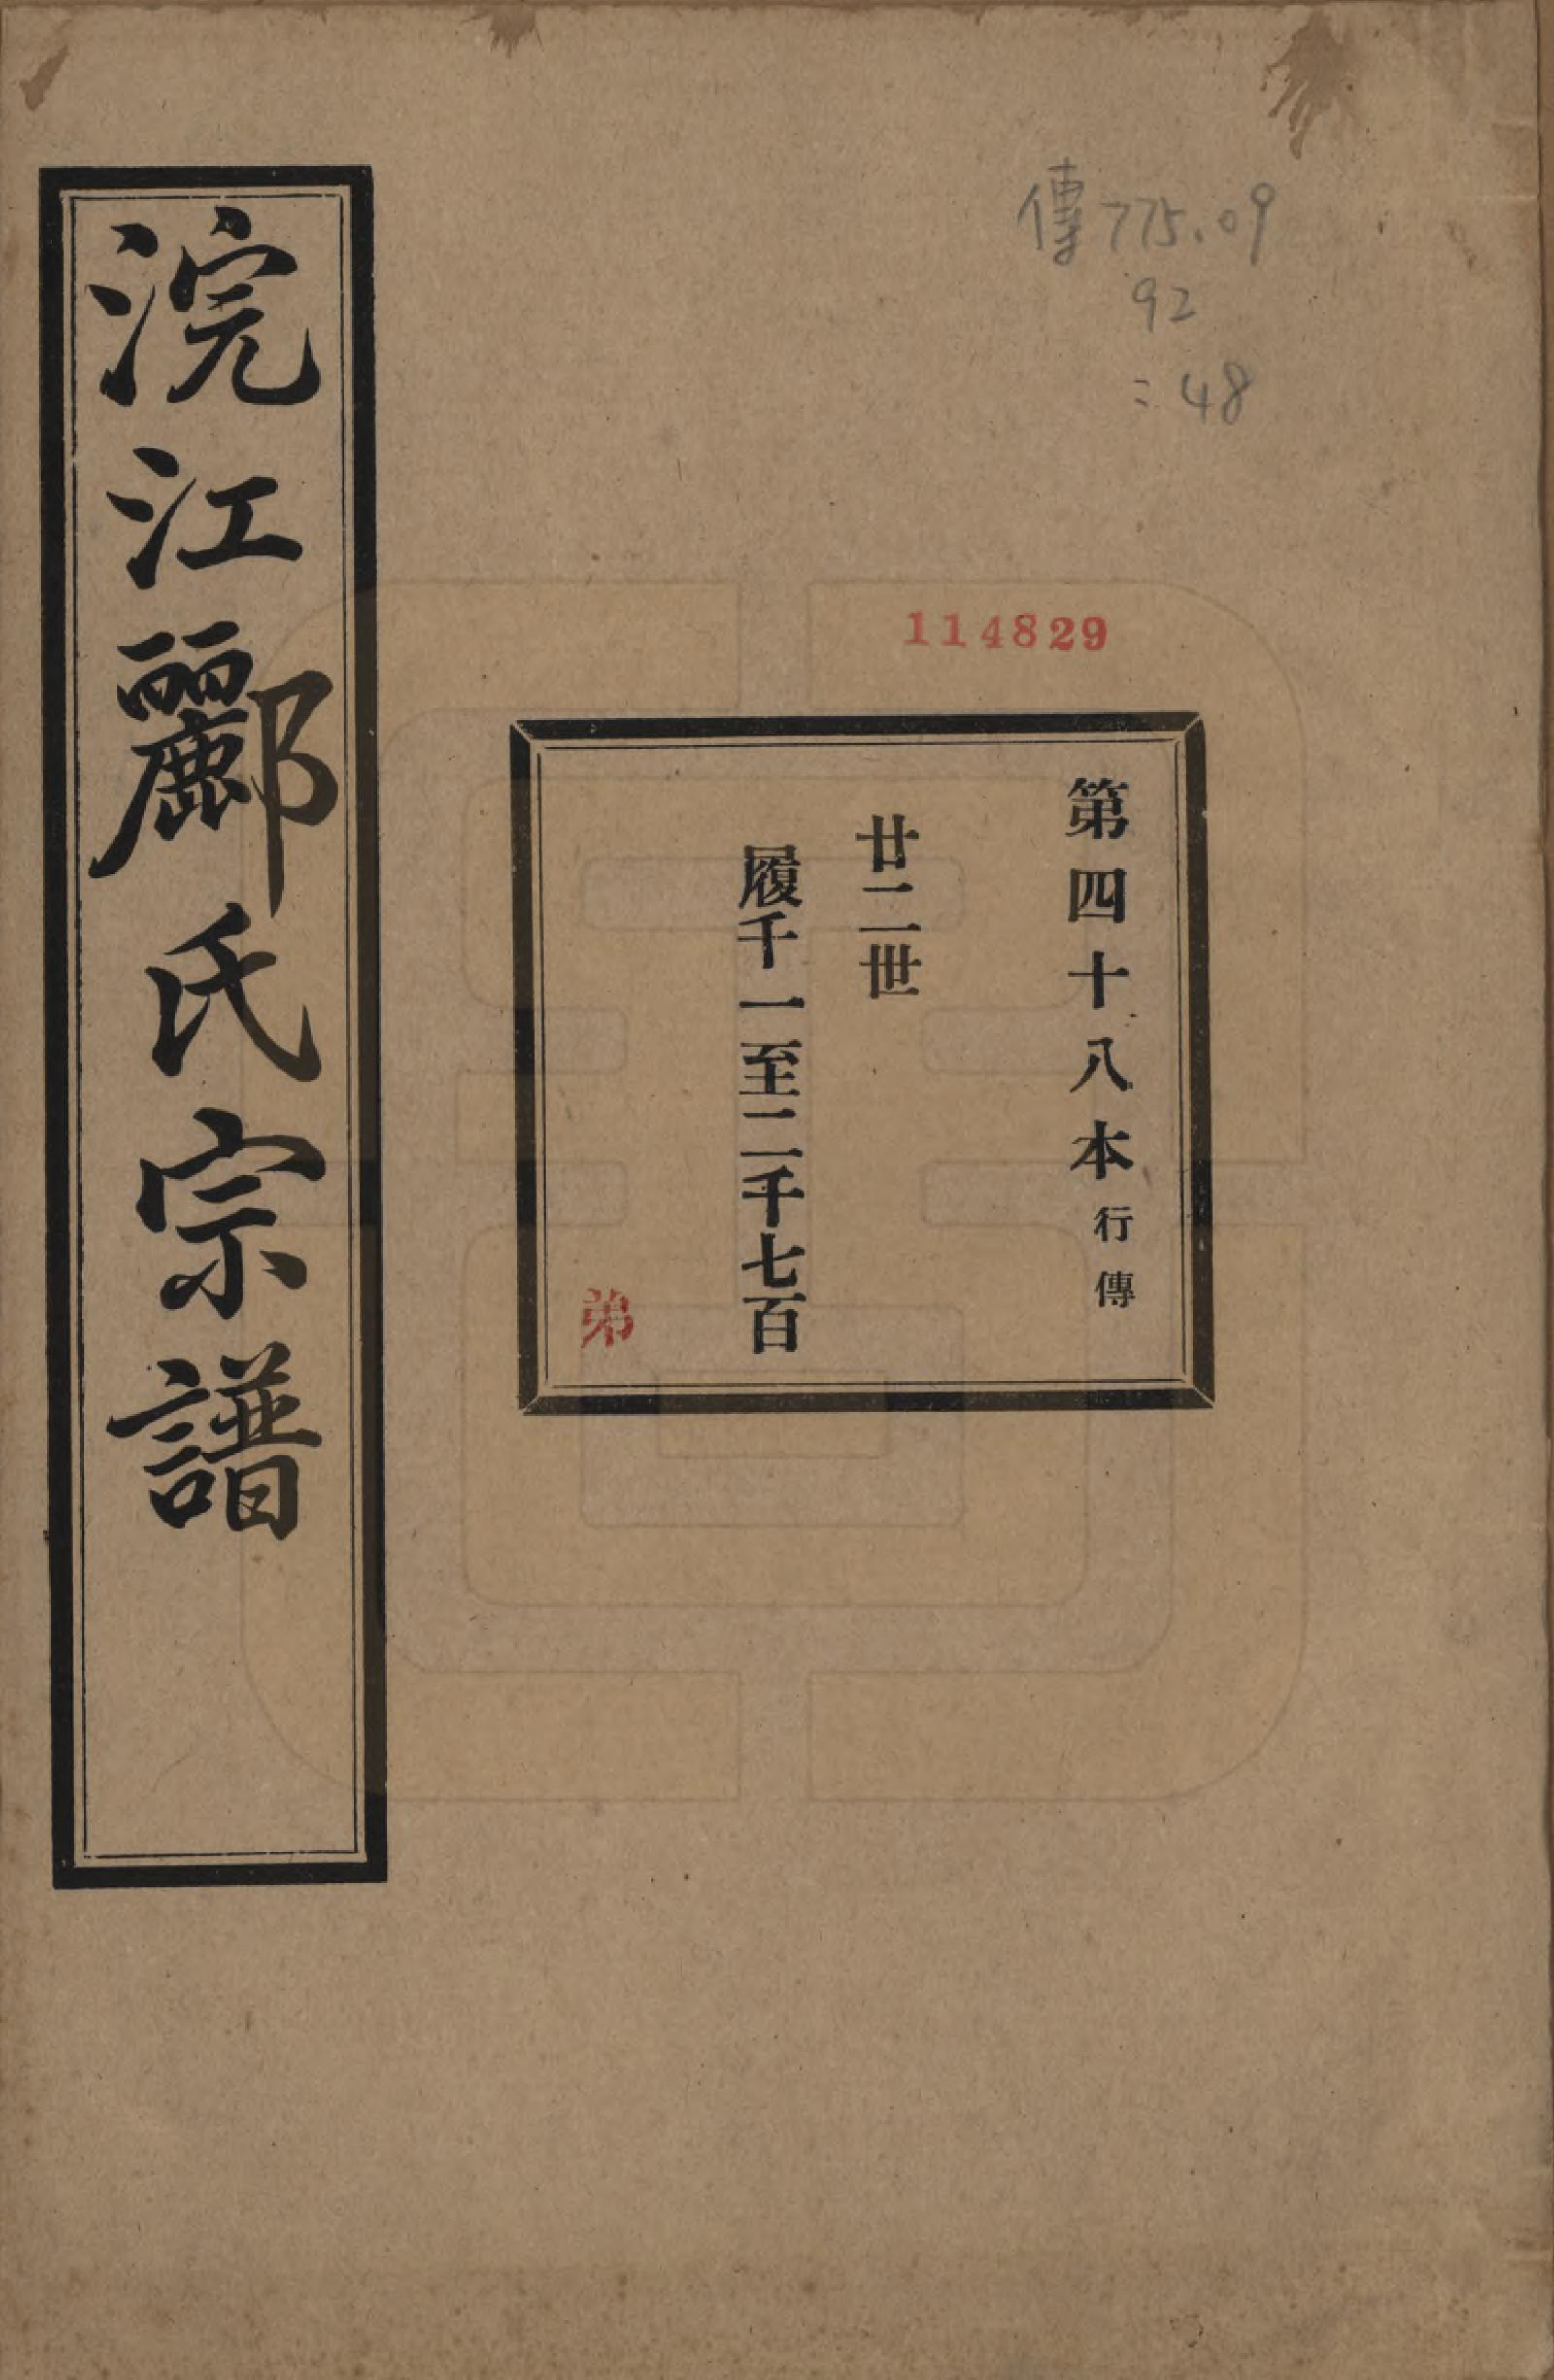 傳775.09
92
:48
114829
第四十八本行傳
廿二世
履千一至二千七百
弟
浣江酈氏宗譜